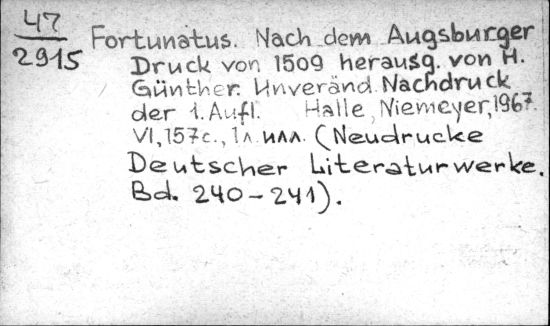 47
2915
Fortunatus. Nach dem Augsburger
Druck von 1509 herausg. von H.
Günther. Unveränd. Nachdruck
der 1. Aufl. Halle, Niemeyer, 1967.
VI, 157с., 1л. илл. (Neudrucke
Deutscher Literaturwerke.
Bd. 240-241).